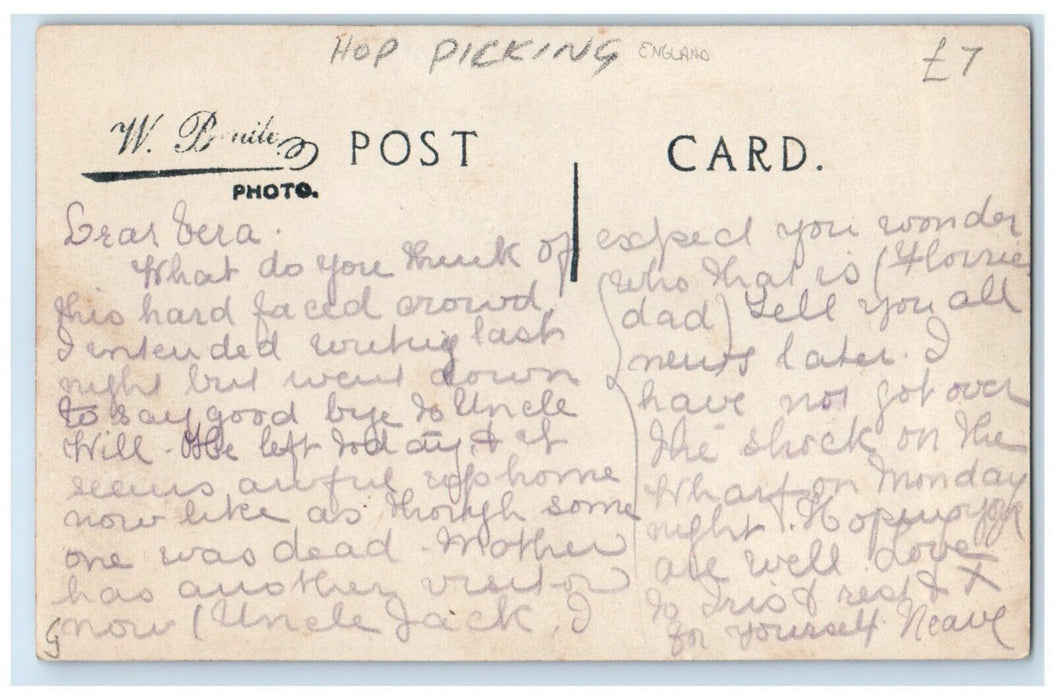 HOP PICKING ENGLAND £7
W.
PHOTO.
POST CARD.
Dear Vera.
What do you think of
this hard faced crowd,
I intended writing last
night but went down
to say good bye to Uncle
Will. He left today & it
seems awful home
now like as though some
one was dead. Mother
has another visitor
now (Uncle Jack. I
expect you wonder
who that is (Florrie
dad) Tell you all
news later. I
have not got over
the shock on the
Wharf on Monday
night. Hoping you
are well love
to Iris & rest & X
for yourself. Neave